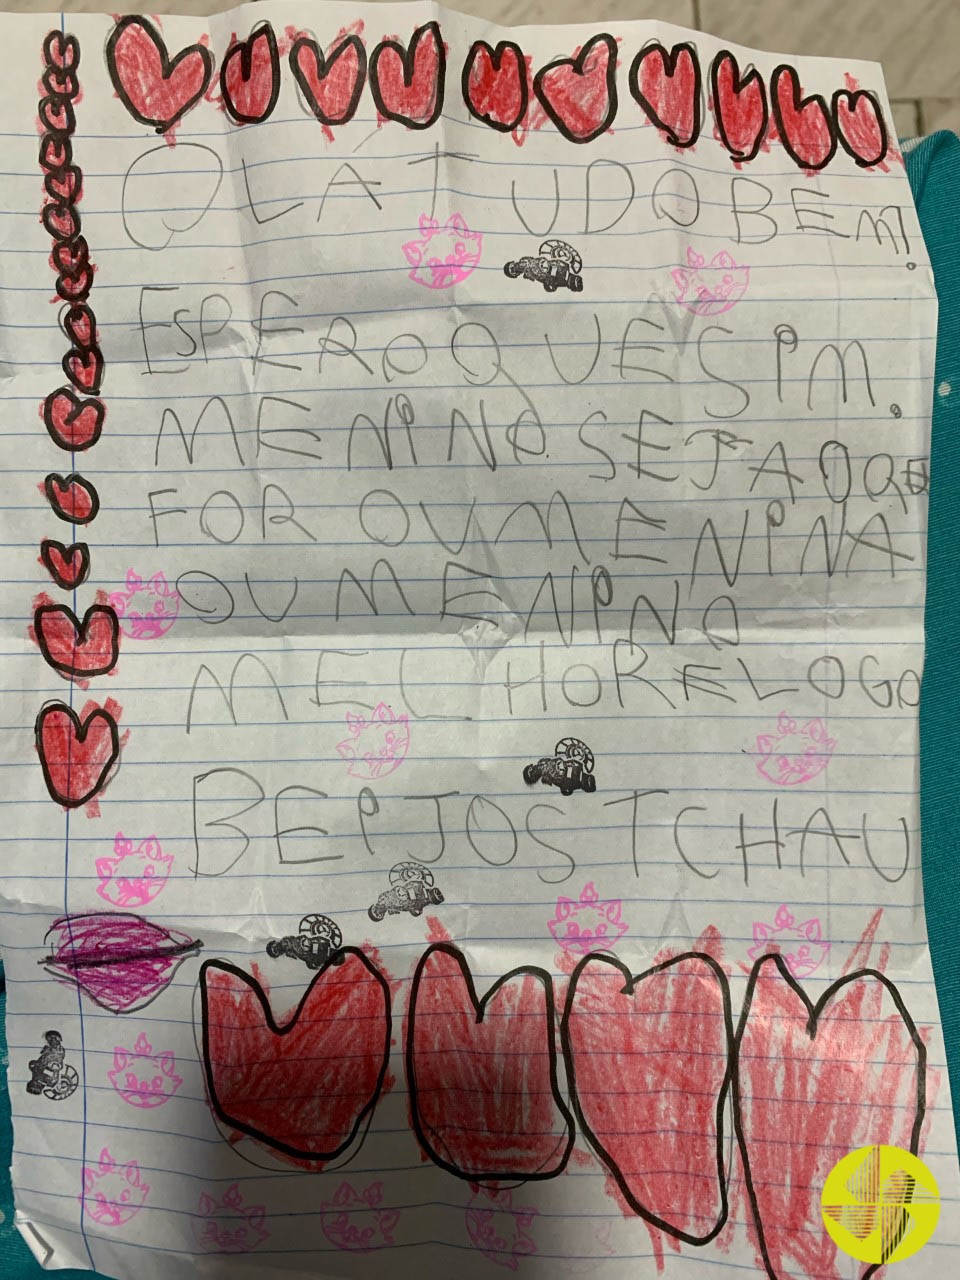 OLÁ TUDO BEM?
ESPERO QUE SIM.
MENINO SEJA O QE
FOR OU MENINA
OU MENINO
MELHORE LOGO
BEIJOS TCHAU